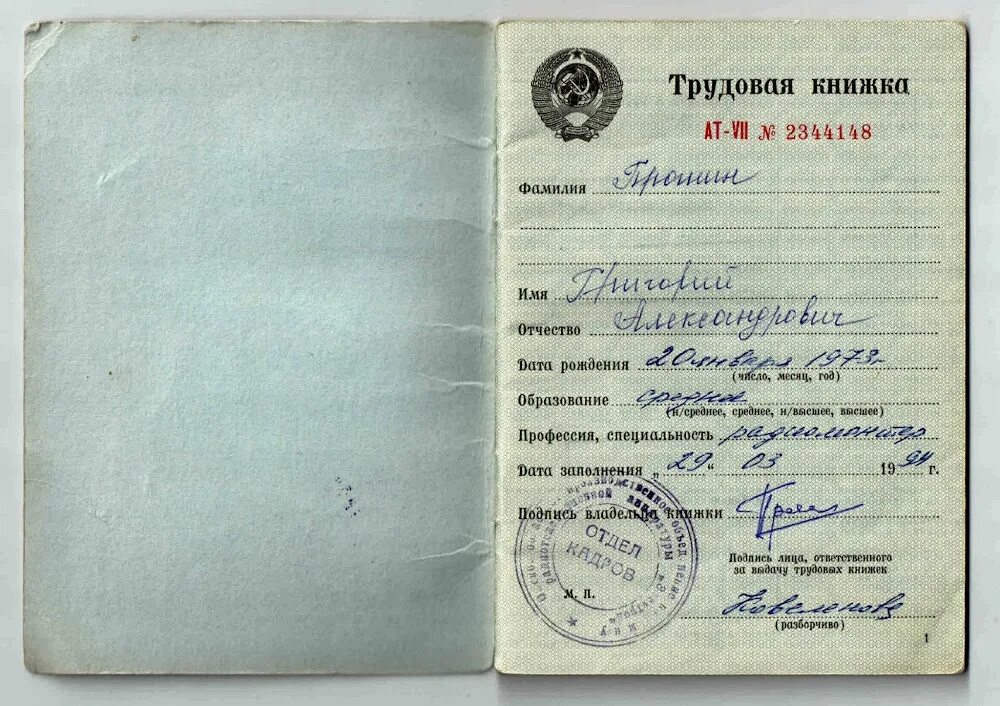 Трудовая книжка
АТ-VII № 2344148
Фамилия Прошин
Имя Григорий
Отчество Александрович
Дата рождения 20 января 1973г
(число, месяц, год)
Образование среднее
(н/среднее, среднее, н/высшее, высшее)
Профессия, специальность радиомонтер
Дата заполнения „ 29 “ 03 19 94 г.
Подпись владельца книжки
Подпись лица, ответственного
за выдачу трудовых книжек
ОТДЕЛ
КАДРОВ
М. П.
(разборчиво)
1